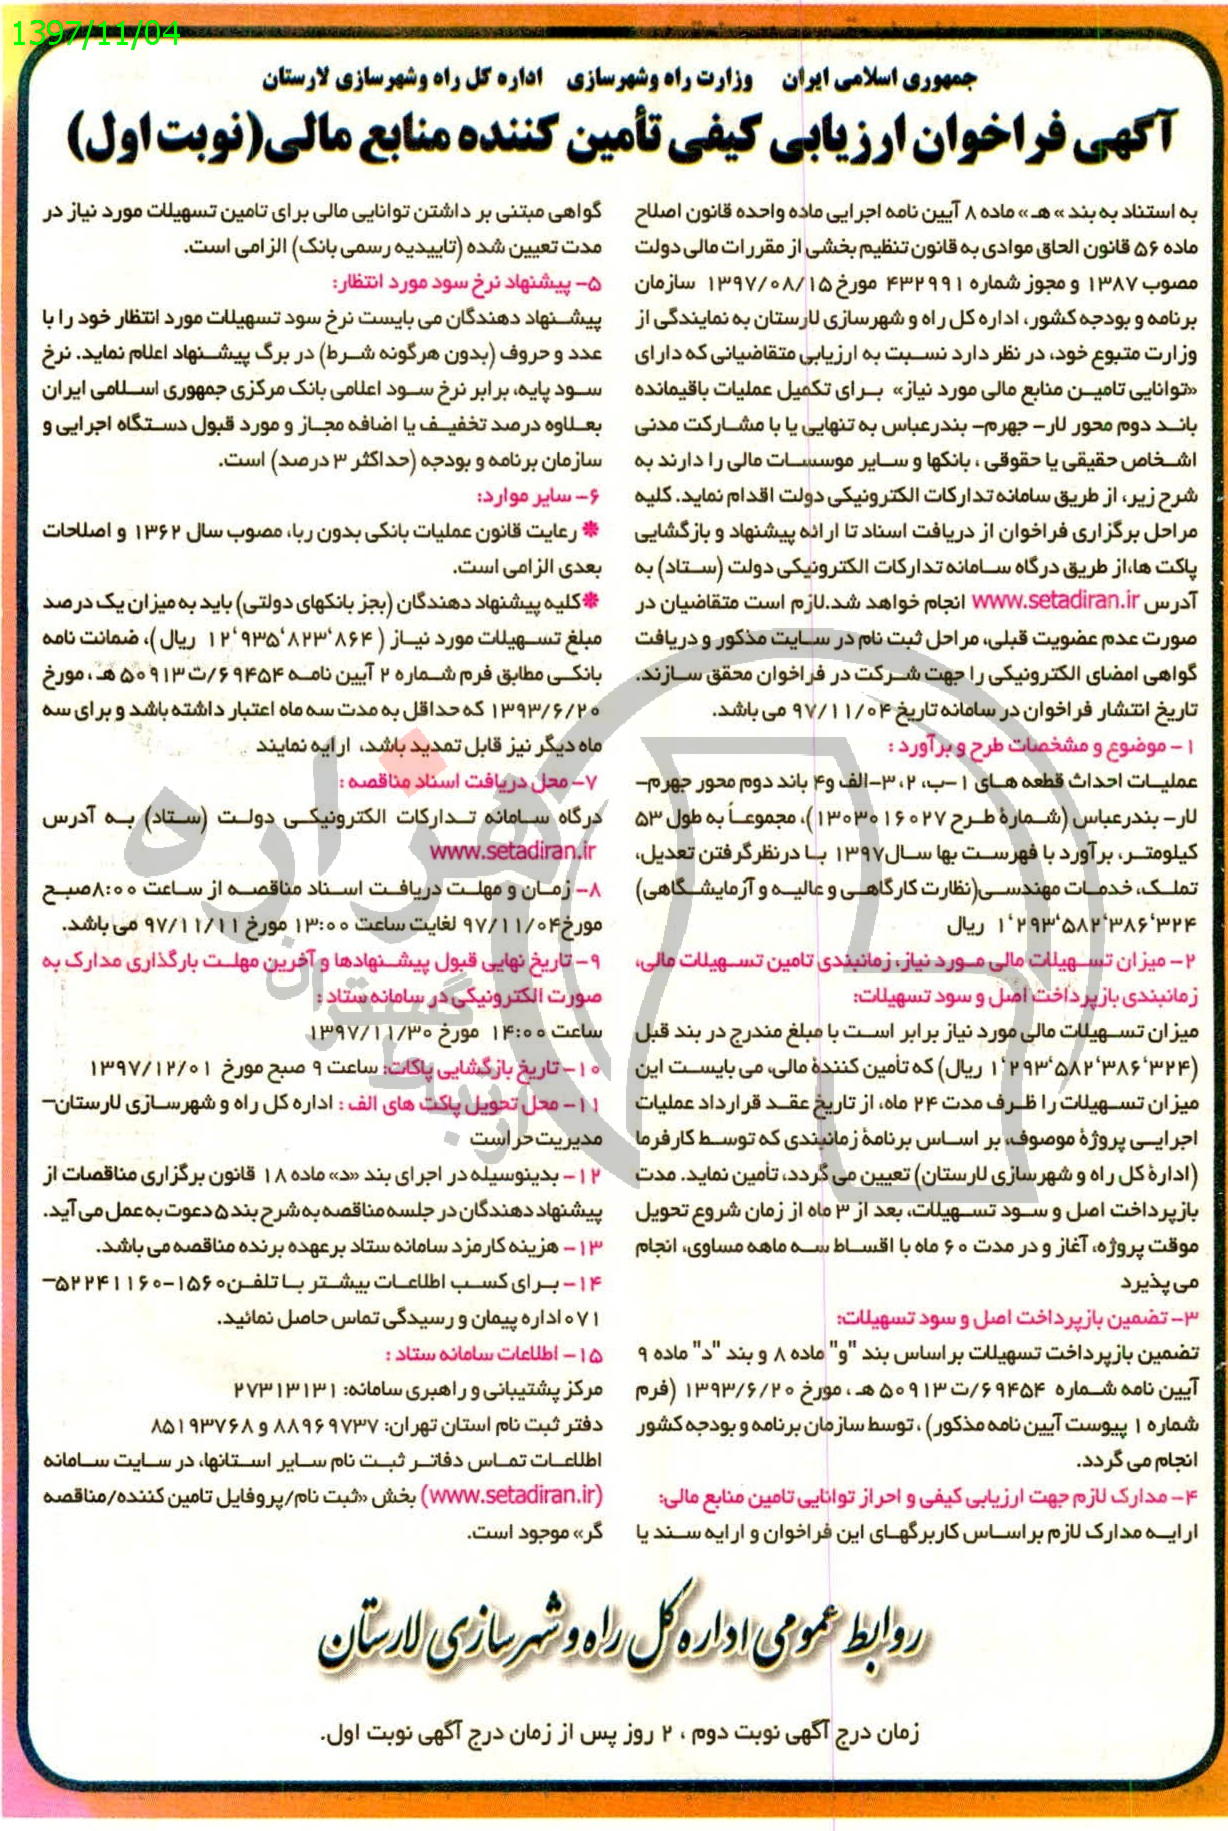 1397/11/04
جمهوری اسلامی ایران وزارت راه وشهرسازی اداره کل راه وشهرسازی لارستان
آگهی فراخوان ارزیابی کیفی تأمین کننده منابع مالی(نوبت اول)
به استناد به بند » هـ» ماده ۸ آیین نامه اجرایی ماده واحده قانون اصلاح
ماده ۵۶ قانون الحاق موادی به قانون تنظیم بخشی از مقررات مالی دولت
مصوب ۱۳۸۷ و مجوز شماره ۴۳۲۹۹۱ مورخ ۱۳۹۷/۰۸/۱۵ سازمان
برنامه و بودجه کشور، اداره کل راه و شهرسازی لارستان به نمایندگی از
وزارت متبوع خود، در نظر دارد نسبت به ارزیابی متقاضیانی که دارای
«توانایی تامین منابع مالی مورد نیاز» برای تکمیل عملیات باقیمانده
باند دوم محور لار- جهرم- بندرعباس به تنهایی یا با مشارکت مدنی
اشخاص حقیقی یا حقوقی ، بانکها و سایر موسسات مالی را دارند به
شرح زیر، از طریق سامانه تدارکات الکترونیکی دولت اقدام نماید. کلیه
مراحل برگزاری فراخوان از دریافت اسناد تا ارائه پیشنهاد و بازگشایی
پاکت ها،از طریق درگاه سامانه تدارکات الکترونیکی دولت (ستاد) به
آدرس www.setadiran.ir انجام خواهد شد.لازم است متقاضیان در
صورت عدم عضویت قبلی، مراحل ثبت نام در سایت مذکور و دریافت
گواهی امضای الکترونیکی را جهت شرکت در فراخوان محقق سازند.
تاریخ انتشار فراخوان در سامانه تاریخ ۹۷/۱۱/۰۴ می باشد.
۱- موضوع و مشخصات طرح و برآورد :
عملیات احداث قطعه های ۱-ب، ۲، ۳-الف و۴ باند دوم محور جهرم-
لار- بندرعباس (شمارۀ طرح ۱۳۰۳۰۱۶۰۲۷)، مجموعاً به طول ۵۳
کیلومتر، برآورد با فهرست بها سال۱۳۹۷ با درنظر گرفتن تعدیل،
تملک، خدمات مهندسی(نظارت کارگاهی و عالیه و آزمایشگاهی)
۱٬۲۹۳٬۵۸۲٬۳۸۶٬۳۲۴ ریال
۲- میزان تسهیلات مالی مورد نیاز، زمانبندی تامین تسهیلات مالی،
زمانبندی بازپرداخت اصل و سود تسهیلات:
میزان تسهیلات مالی مورد نیاز برابر است با مبلغ مندرج در بند قبل
(۱٬۲۹۳٬۵۸۲٬۳۸۶٬۳۲۴ ریال) که تأمین کنندۀ مالی، می بایست این
میزان تسهیلات را ظرف مدت ۲۴ ماه، از تاریخ عقد قرارداد عملیات
اجرایی پروژۀ موصوف، بر اساس برنامۀ زمانبندی که توسط کارفرما
(ادارۀ کل راه و شهرسازی لارستان) تعیین می گردد، تأمین نماید. مدت
بازپرداخت اصل و سود تسهیلات، بعد از ۳ ماه از زمان شروع تحویل
موقت پروژه، آغاز و در مدت ۶۰ ماه با اقساط سه ماهه مساوی، انجام
می پذیرد
۳- تضمین بازپرداخت اصل و سود تسهیلات:
تضمین بازپرداخت تسهیلات بر اساس بند "و" ماده ۸ و بند "د" ماده ۹
آیین نامه شماره ۶۹۴۵۴/ت ۵۰۹۱۳ هـ ، مورخ ۱۳۹۳/۶/۲۰ (فرم
شماره ۱ پیوست آیین نامه مذکور) ، توسط سازمان برنامه و بودجه کشور
انجام می گردد.
۴- مدارک لازم جهت ارزیابی کیفی و احراز توانایی تامین منابع مالی:
ارایه مدارک لازم براساس کاربرگهای این فراخوان و ارایه سند یا
گواهی مبتنی بر داشتن توانایی مالی برای تامین تسهیلات مورد نیاز در
مدت تعیین شده (تاییدیه رسمی بانک) الزامی است.
۵- پیشنهاد نرخ سود مورد انتظار:
پیشنهاد دهندگان می بایست نرخ سود تسهیلات مورد انتظار خود را با
عدد و حروف (بدون هرگونه شرط) در برگ پیشنهاد اعلام نماید. نرخ
سود پایه، برابر نرخ سود اعلامی بانک مرکزی جمهوری اسلامی ایران
بعلاوه درصد تخفیف یا اضافه مجاز و مورد قبول دستگاه اجرایی و
سازمان برنامه و بودجه (حداکثر ۳ درصد) است.
۶- سایر موارد:
* رعایت قانون عملیات بانکی بدون ربا، مصوب سال ۱۳۶۲ و اصلاحات
بعدی الزامی است.
*کلیه پیشنهاد دهندگان (بجز بانکهای دولتی) باید به میزان یک درصد
مبلغ تسهیلات مورد نیاز ( ۱۲٬۹۳۵٬۸۲۳٬۸۶۴ ریال)، ضمانت نامه
بانکی مطابق فرم شماره ۲ آیین نامه ۶۹۴۵۴/ت ۵۰۹۱۳ هـ ، مورخ
۱۳۹۳/۶/۲۰ که حداقل به مدت سه ماه اعتبار داشته باشد و برای سه
ماه دیگر نیز قابل تمدید باشد، ارایه نمایند
۷- محل دریافت اسناد مناقصه :
درگاه سامانه تدارکات الکترونیکی دولت (ستاد) به آدرس
www.setadiran.ir
۸- زمان و مهلت دریافت اسناد مناقصه از ساعت ۸:۰۰صبح
مورخ۹۷/۱۱/۰۴ لغایت ساعت ۱۳:۰۰ مورخ ۹۷/۱۱/۱۱ می باشد.
۹- تاریخ نهایی قبول پیشنهادها و آخرین مهلت بارگذاری مدارک به
صورت الکترونیکی در سامانه ستاد :
ساعت ۱۴:۰۰ مورخ ۱۳۹۷/۱۱/۳۰
۱۰- تاریخ بازگشایی پاکات: ساعت ۹ صبح مورخ ۱۳۹۷/۱۲/۰۱
۱۱- محل تحویل پاکت های الف : اداره کل راه و شهرسازی لارستان-
مدیریت حراست
۱۲- بدینوسیله در اجرای بند «د» ماده ۱۸ قانون برگزاری مناقصات از
پیشنهاد دهندگان در جلسه مناقصه به شرح بند ۵ دعوت به عمل می آید.
۱۳- هزینه کارمزد سامانه ستاد برعهده برنده مناقصه می باشد.
۱۴- برای کسب اطلاعات بیشتر با تلفن۱۵۶۰-۵۲۲۴۱۱۶۰-
۰۷۱ اداره پیمان و رسیدگی تماس حاصل نمائید.
۱۵- اطلاعات سامانه ستاد :
مرکز پشتیبانی و راهبری سامانه: ۲۷۳۱۳۱۳۱
دفتر ثبت نام استان تهران: ۸۸۹۶۹۷۳۷ و ۸۵۱۹۳۷۶۸
اطلاعات تماس دفاتر ثبت نام سایر استانها، در سایت سامانه
(www.setadiran.ir) بخش «ثبت نام/پروفایل تامین کننده/مناقصه
گر» موجود است.
روابط عمومی اداره کل راه و شهرسازی لارستان
زمان درج آگهی نوبت دوم ، ۲ روز پس از زمان درج آگهی نوبت اول.
هزاره